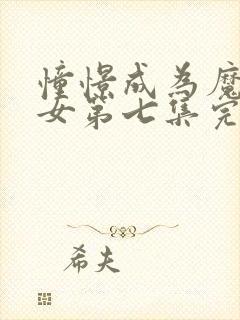 憧憬成为魔
女第七集完
希夫